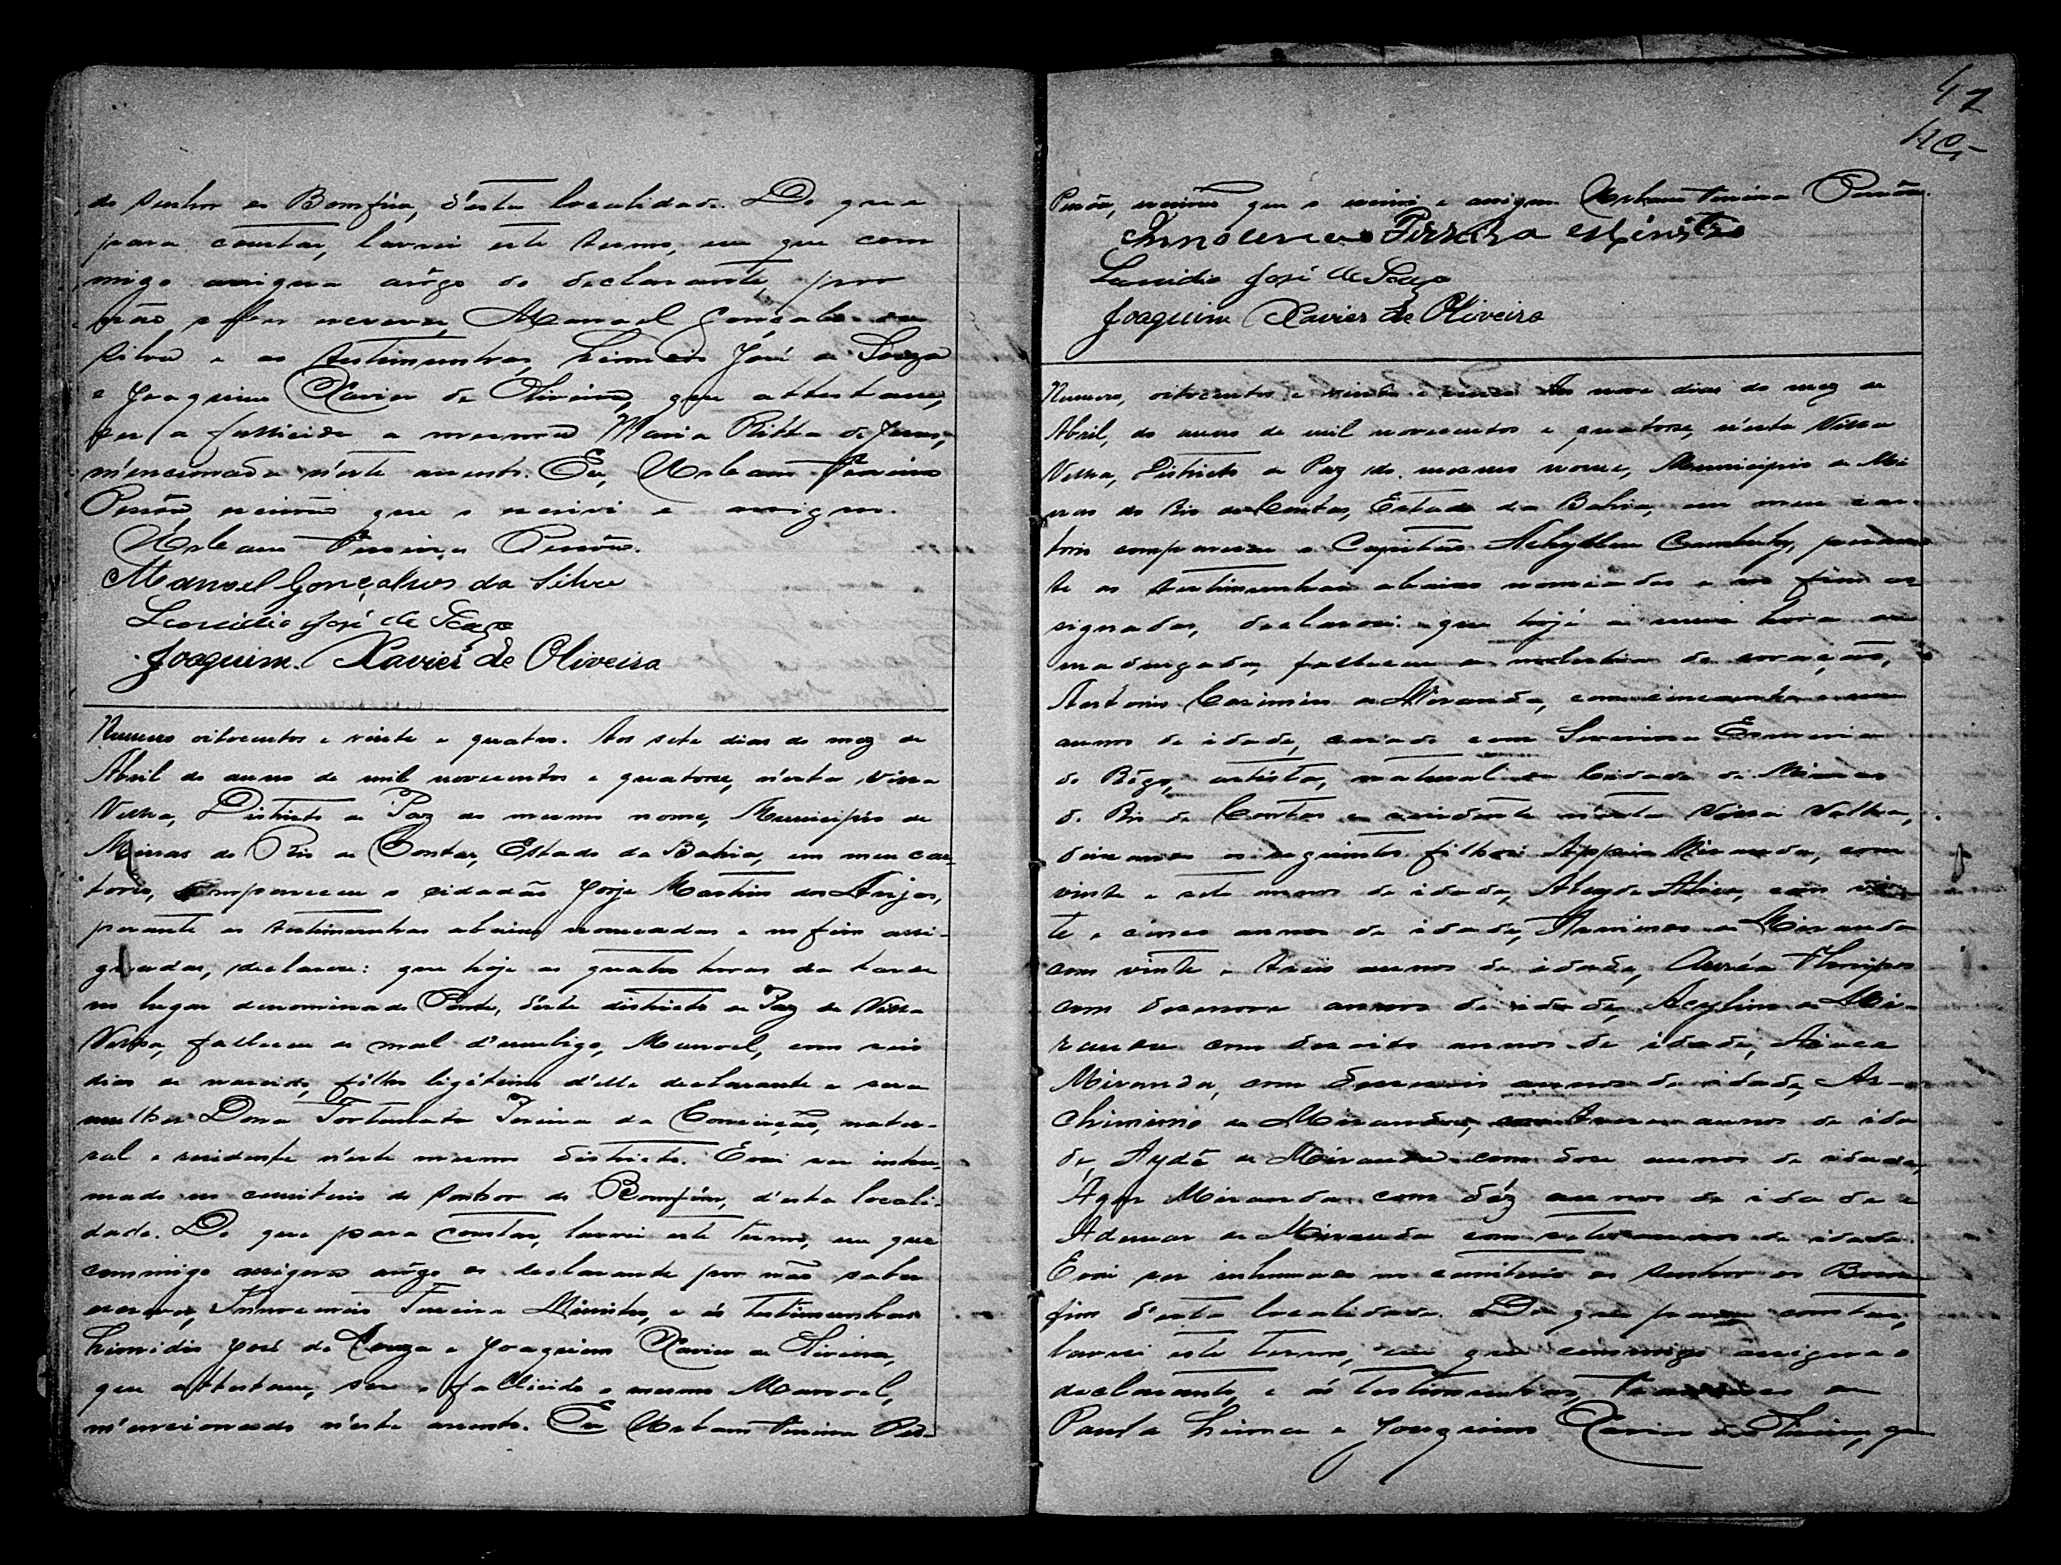 do Senhor do Bomfim, d'esta localidade. Do que
para constar, lavrei este termo, em que com
migo assigna arôgo do declarante, por
não saber escrever, Manoel Gonçalves da
Silva e as testimunhas, Leonidio José de Souza
e Joaquim Xavier de Oliveira, que attestam,
ser a fallicida a mesma Maria Ritta de Jesus,
m'encionada n'este assento. Eu, Urbano Pereira
escrivão que o escrivi e assigno.
Urbano Pereira
Manoel Gonçalves da Silva
Leonidio José de Souza
Joaquim Xavier de Oliveira
Numero oitocentos e vinte e quatro. Aos sete dias do mez de
Abril do anno de mil novecentos e quatorse, n'esta Villa
Velha, Districto de Paz do mesmo nome, Municipio de
Minas do Rio de Contas, Estado da Bahia, em meu car
torio, compareceu o cidadão Jorje Martins dos Anjos,
perante as testimunhas abaixo nomeadas e no fim assi-
gnadas, declarou: que hoje as quatro horas da tarde
no lugar denominado Ponte, d'este districto de Paz de Villa
Velha, falleceu de mal d'umbigo, Manoel, com seis
dias de nascido, filho ligitimo d'elle declarante e sua
mulher Dona Fortunata Pereira da Conceição, natu-
ral e residente n'este mesmo districto. E vai ser inhu-
mado no cemiterio do Senhor do Bomfim, d'esta locali-
dade. Do que para constar, lavrei este termo, em que
commigo assigna arôgo do declarante por não saber
escrever, Innocencio Pereira Ministro, e as testimunhas
Leonidio José de Souza e Joaquim Xavier de Oliveira,
que attestam, ser o fallicido o mesmo Manoel,
m'encionado n'este assento. Eu Urbano Pereira
47
escrivão que o escrivi e assigno. Urbano Pereira
Innocencio Ferreira Ministro
Leonidio José de Souza
Joaquim Xavier de Oliveira
Numero, oitocentos e vinte e cinco Aos nove dias do mez de
Abril, do anno de mil novecentos e quatorse, n'esta Villa
Velha, Districto de Paz do mesmo nome, Municipio de Mi
nas do Rio de Contas, Estado da Bahia, em meu car-
torio compareceu o Capitão peran
te as testimunhas abaixo nomeadas e no fim as
signadas, declarou: que hoje a uma hora da
madurgada, falleceu de molestia do coração,
Antonio Casimiro de Miranda, com cincoenta e um
annos de idade, casado com Severina Esmeria
do Rêgo, artista, natural da Cidade de Minas
do Rio de Contas e residente n'esta Villa Velha,
deixando os seguintes filhos: Appio Miranda, com
vinte e sete annos de idade, com vin
te e cinco annos de idade, de Miranda
com vinte e treis annos de idade, Aurêa
com desenove annos de idade, Acylino de Mi-
randa com desoito annos de idade,
Miranda, com deseseis annos de idade, Ar-
chimimo de Miranda, com treze annos de ida
de, Aydê de Miranda com dose annos de idade,
Agor Miranda com déz annos de idade e
Ademar de Miranda com sete annos de idade.
E vai ser inhumado no cemiterio do Senhor do Bom
fim d'esta localidade. Do que para constar,
lavrei este termo, em que commigo assigna o
declarante, e as testimunhas, Francisco de
Paula Lima e Joaquim Xavier de Oliveira, que